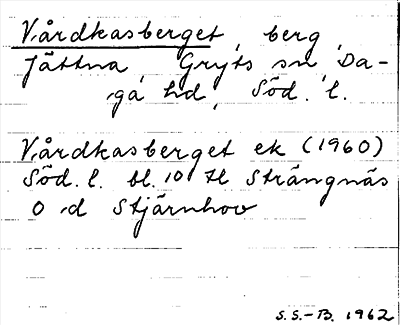 Vårdkasberget, berg,
Jättna, Gryts sn, Da-
ga hd, Söd. l.
Vårdkasberget ek (1960)
Söd. l. bl. 10 Strängnäs
O d Stjärnhov
S.S.-B. 1962